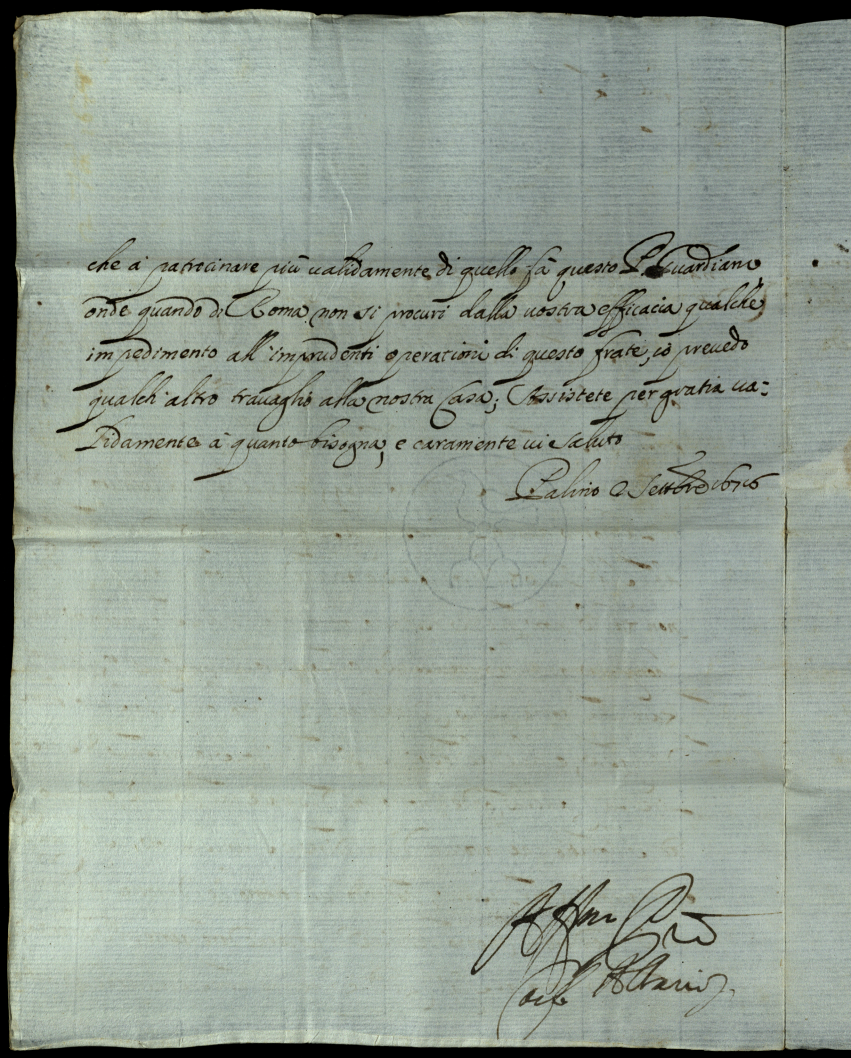 che à patrocinare più validamente di quello fà questo P. Guardiano,
onde quando di Roma non si procuri dalla vostra efficacia qualche
impedimento all'imprudenti operationi di questo frate, io prevedo
qualch'altro travaglio alla nostra Casa; Assistete per gratia va=
lidamente à quanto bisogna, e caramente vi saluto
2 Settbre 1676
Affmo